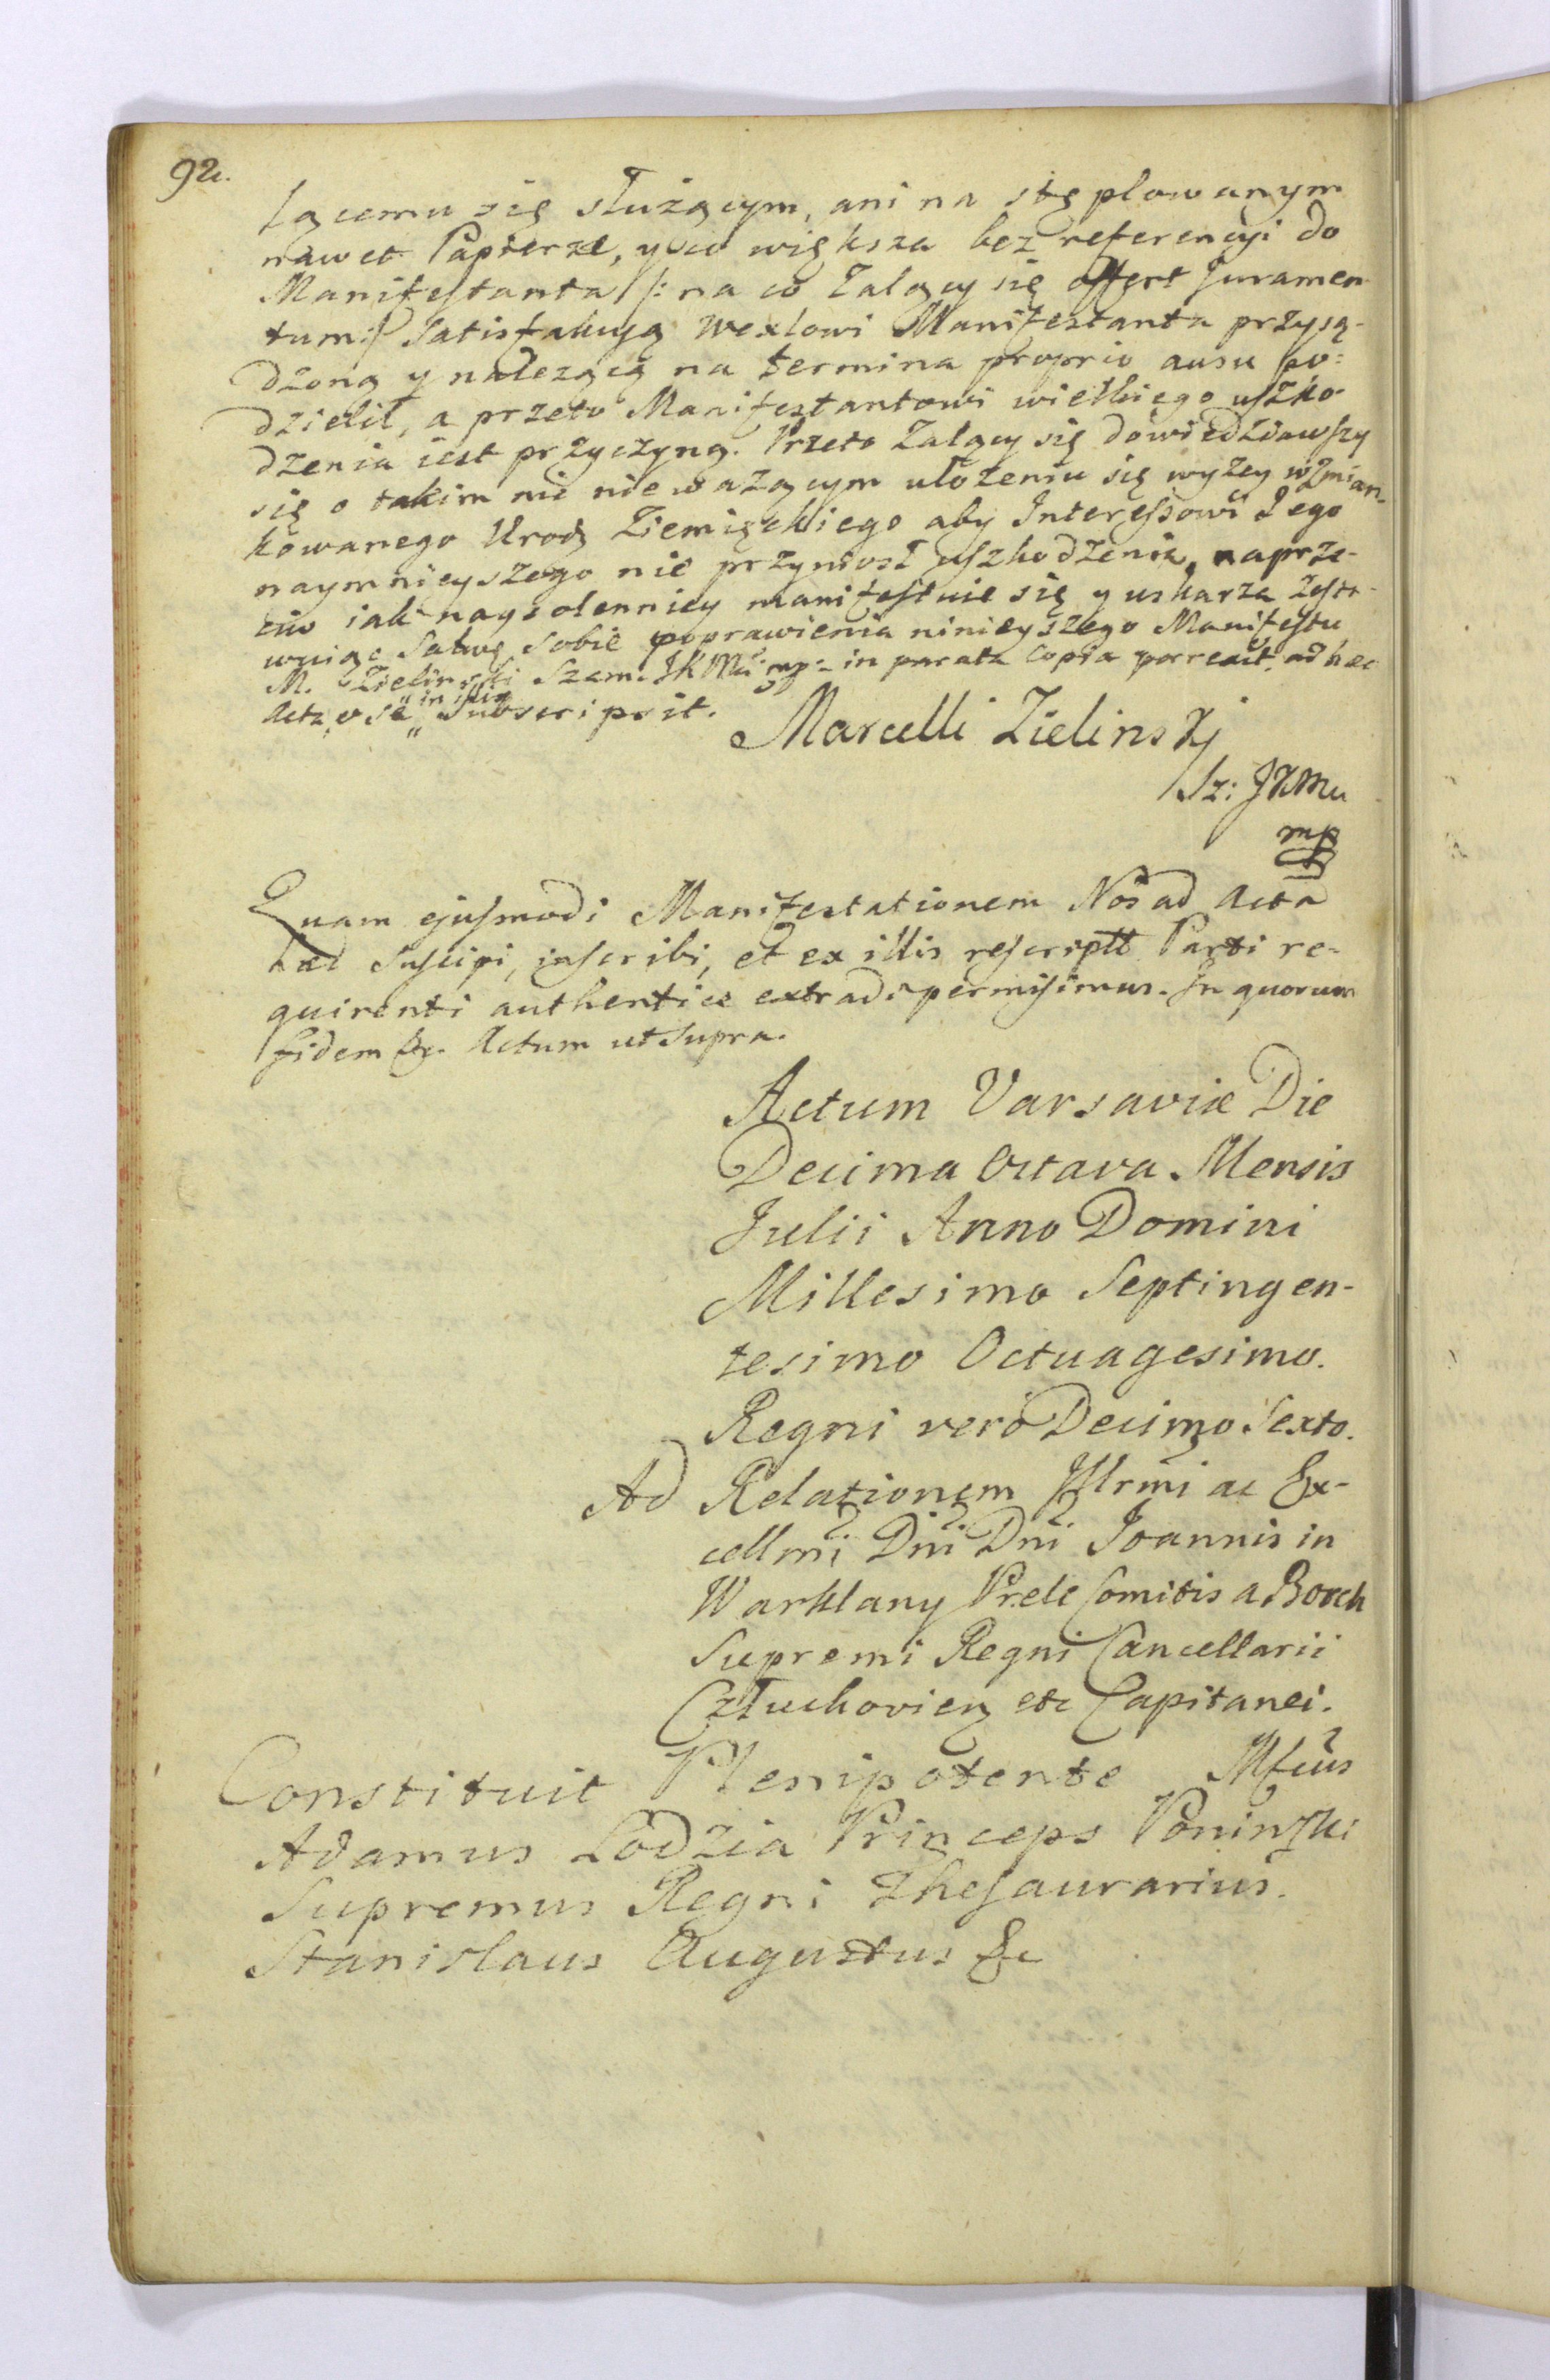 92.
łącemu się służącym, ani na stęplowanym
nawet Papierze, y co większa bez referencyi do
Manifestanta /: na co Żalący się offert Juramen
tum :/ Satisfakcyą Wexlowi Manifestanta przysą-
dzoną y należącą na termina proprio ausu po=
dzielił, a przeto Manifestantowi wielkiego uszko-
dzenia iest przyczyną. Przeto Żalący się dowiedziawszy
się o takim nic nieważącym ułożeniu się wyżey wzmian-
kowanego Urodz Ziemięckiego aby Interessowi Jego
naymnieyszego nie przyniosł uszkodzenia, naprze-
ciw iak naysolenniey manifestuie się y uskarza zosta-
wuiąc Salwę Sobie poprawienia ninieyszego Manifestu
M. Zielinski Szam: JKMci mp: in parata Copia porrexit, ad hæc
Acta, et se "in illis" Subscripsit.
Marcelli Zielinskj
Sz: JKMci
mp
Quam ejusmodi Manifestationem Nos ad Acta
hæc Suscipi, inscribi, et ex illis rescriptt Parti re-
quirenti authentice extradi permisimus. In quorum
fidem &c. Actum ut Supra.
Actum Varsaviæ Die
Decima Octava Mensis
Julii Anno Domini
Millesimo Septingen-
tesimo Octuagesimo.
Regni verò Decimo Sexto.
Ad Relationem Jllrmi ac Ex-
cellmi Dni Dni Joannis in
Warklany Prele Comitis a Borch
Supremi Regni Cancellarii
Człuchovien etc Capitanei.
Constituit Plenipotente Mfcus
Adamus Lodzia Princeps Poninski
Supremus Regni Thesaurarius.
Stanislaus Augustus &c